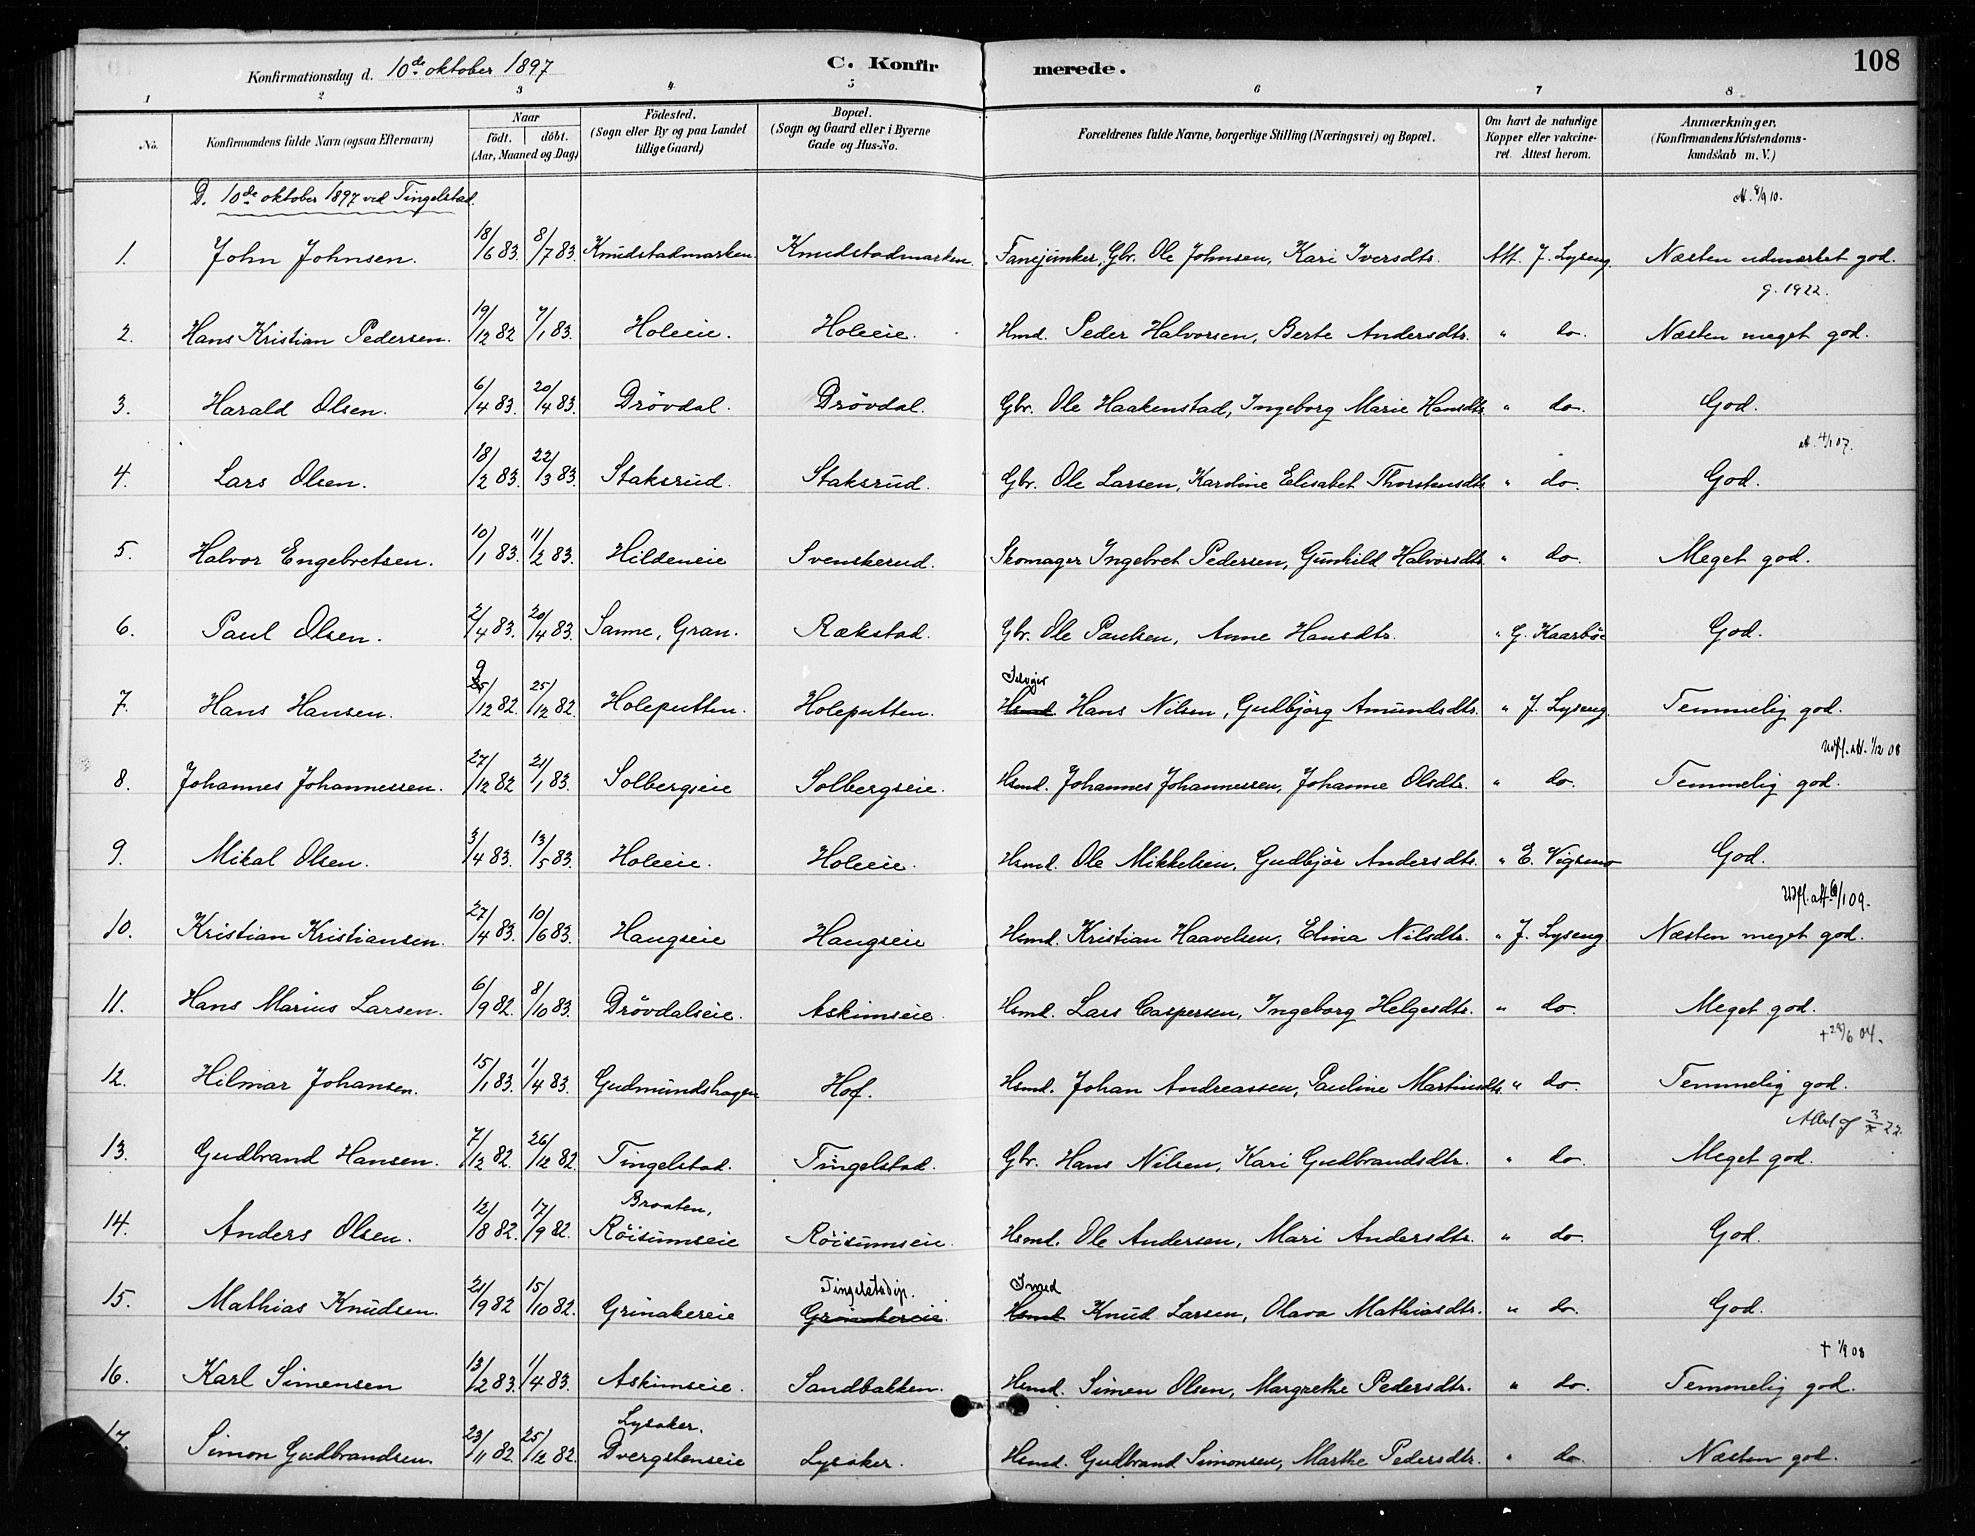 Konfirmationsdag d. 10de oktober 1897
C. Konfirmerede.
108
1 2 3 4 5 6 7 8
No.
Konfirmandens fulde Navn (ogsaa Efternavn)
Naar
födt. döbt.
(Aar, Maaned og Dag)
Födested.
(Sogn eller By og paa Landet
tillige Gaard)
Bopæl.
(Sogn og Gaard eller i Byerne
Gade og Hus-No.
Forældrenes fulde Navne, borgerlige Stilling (Næringsvei) og Bopæl.
Om havt de naturlige
Kopper eller vakcine-
ret. Attest herom.
Anmærkninger.
(Konfirmandens Kristendoms-
kundskab m. V.)
D. 10de oktober 1897 ved Tingelstad.
At. 8/9 10.
1. John Johnsen. 18/6 83. 8/7 83. Knudstadmarken. Knudstadmarken. Fanejunker, Gbr. Ole Johnsen, Kari Iversdtr. Att. J. Lyseng. Næsten udmærket god.
g. 1922.
2. Hans Kristian Pedersen. 19/12 82 7/1 83. Holeeie. Holeeie. Hmd. Peder Halvorsen, Berte Andersdtr. " do. Næsten meget god.
3. Harald Olsen. 6/4 83. 20/4 83. Drövdal. Drövdal. Gbr. Ole Haakenstad, Ingeborg Marie Hansdtr " do. God.
att. 4/1 07.
4. Lars Olsen. 18/2 83. 22/3 83. Staksrud. Staksrud. Gbr. Ole Larsen, Karoline Elisabet Thorstensdtr " do. God.
5. Halvor Engebretsen. 10/1 83. 11/2 83. Hildeneie Svenskerud. Skomager Ingebret Pedersen, Gunhild Halvorsdtr. " do. Meget god.
6. Paul Olsen. 2/4 83. 20/4 83. Sanne, Gran. Rækstad. Gbr. Ole Paulsen, Anne Hansdtr. " G. Kaarböe God.
9
Selvejer
7. Hans Hansen. 25/12 82. 25/12 82. Holeputten. Holeputten. Hsmd. Hans Nilsen, Gudbjörg Amundsdtr. " J. Lyseng. Temmelig god.
Udfl. att. 1/12 08
8. Johannes Johannessen. 27/12 82 21/1 83. Solbergseie Solbergseie. Hsmd. Johannes Johannessen, Johanne Olsdtr. " do. Temmelig god.
9. Mikal Olsen. 3/4 83. 13/5 83. Holeeie. Holeeie. Hsmd. Ole Mikkelsen, Gudbjör Andersdtr. " E. Vigsmo God.
Udfl. att. 6/1 09.
10. Kristian Kristiansen. 27/4 83. 10/6 83. Haugseie Haugseie Hsmd. Kristian Haavelsen, Elina Nilsdtr. " J. Lyseng Næsten meget god.
11. Hans Marius Larsen. 6/9 82. 8/10 83. Drövdalseie. Askimseie. Hsmd. Lars Caspersen, Ingeborg Helgesdtr. " do. Meget god.
+ 28/6 04.
12. Hilmar Johansen. 15/1 83. 1/4 83. Gudmundshagen Hof. Hsmd. Johan Andreassen, Pauline Martinsdtr. " do. Temmelig god.
13. Gudbrand Hansen. 7/12 82. 26/12 82. Tingelstad. Tingelstad. Gbr. Hans Nilsen, Kari Gudbrandsdtr. " do. Meget god.
Braaten,
14. Anders Olsen. 12/8 82. 17/9 82. Röisumseie Röisumseie. Hsmd. Ole Andersen, Mari Andersdtr. " do. God.
Tingelstadp.
Smed
15. Mathias Knudsen. 21/9 82 15/10 82. Grinakereie Grinakereie. Hsmd Knud Larsen, Olava Mathiasdtr. " do. God.
+ 1/9 08
16. Karl Simensen 13/2 83. 1/4 83. Askimseie. Sandbakken. Hsmd. Simen Olsen, Margrethe Pedersdtr. " do. Temmelig god.
Lysaker.
17. Simon Gudbrandsen. 23/11 82. 25/12 82. Dvergstenseie Lysaker. Hsmd. Gudbrand Simonsen, Marthe Pedersdtr. " do. Næsten god.